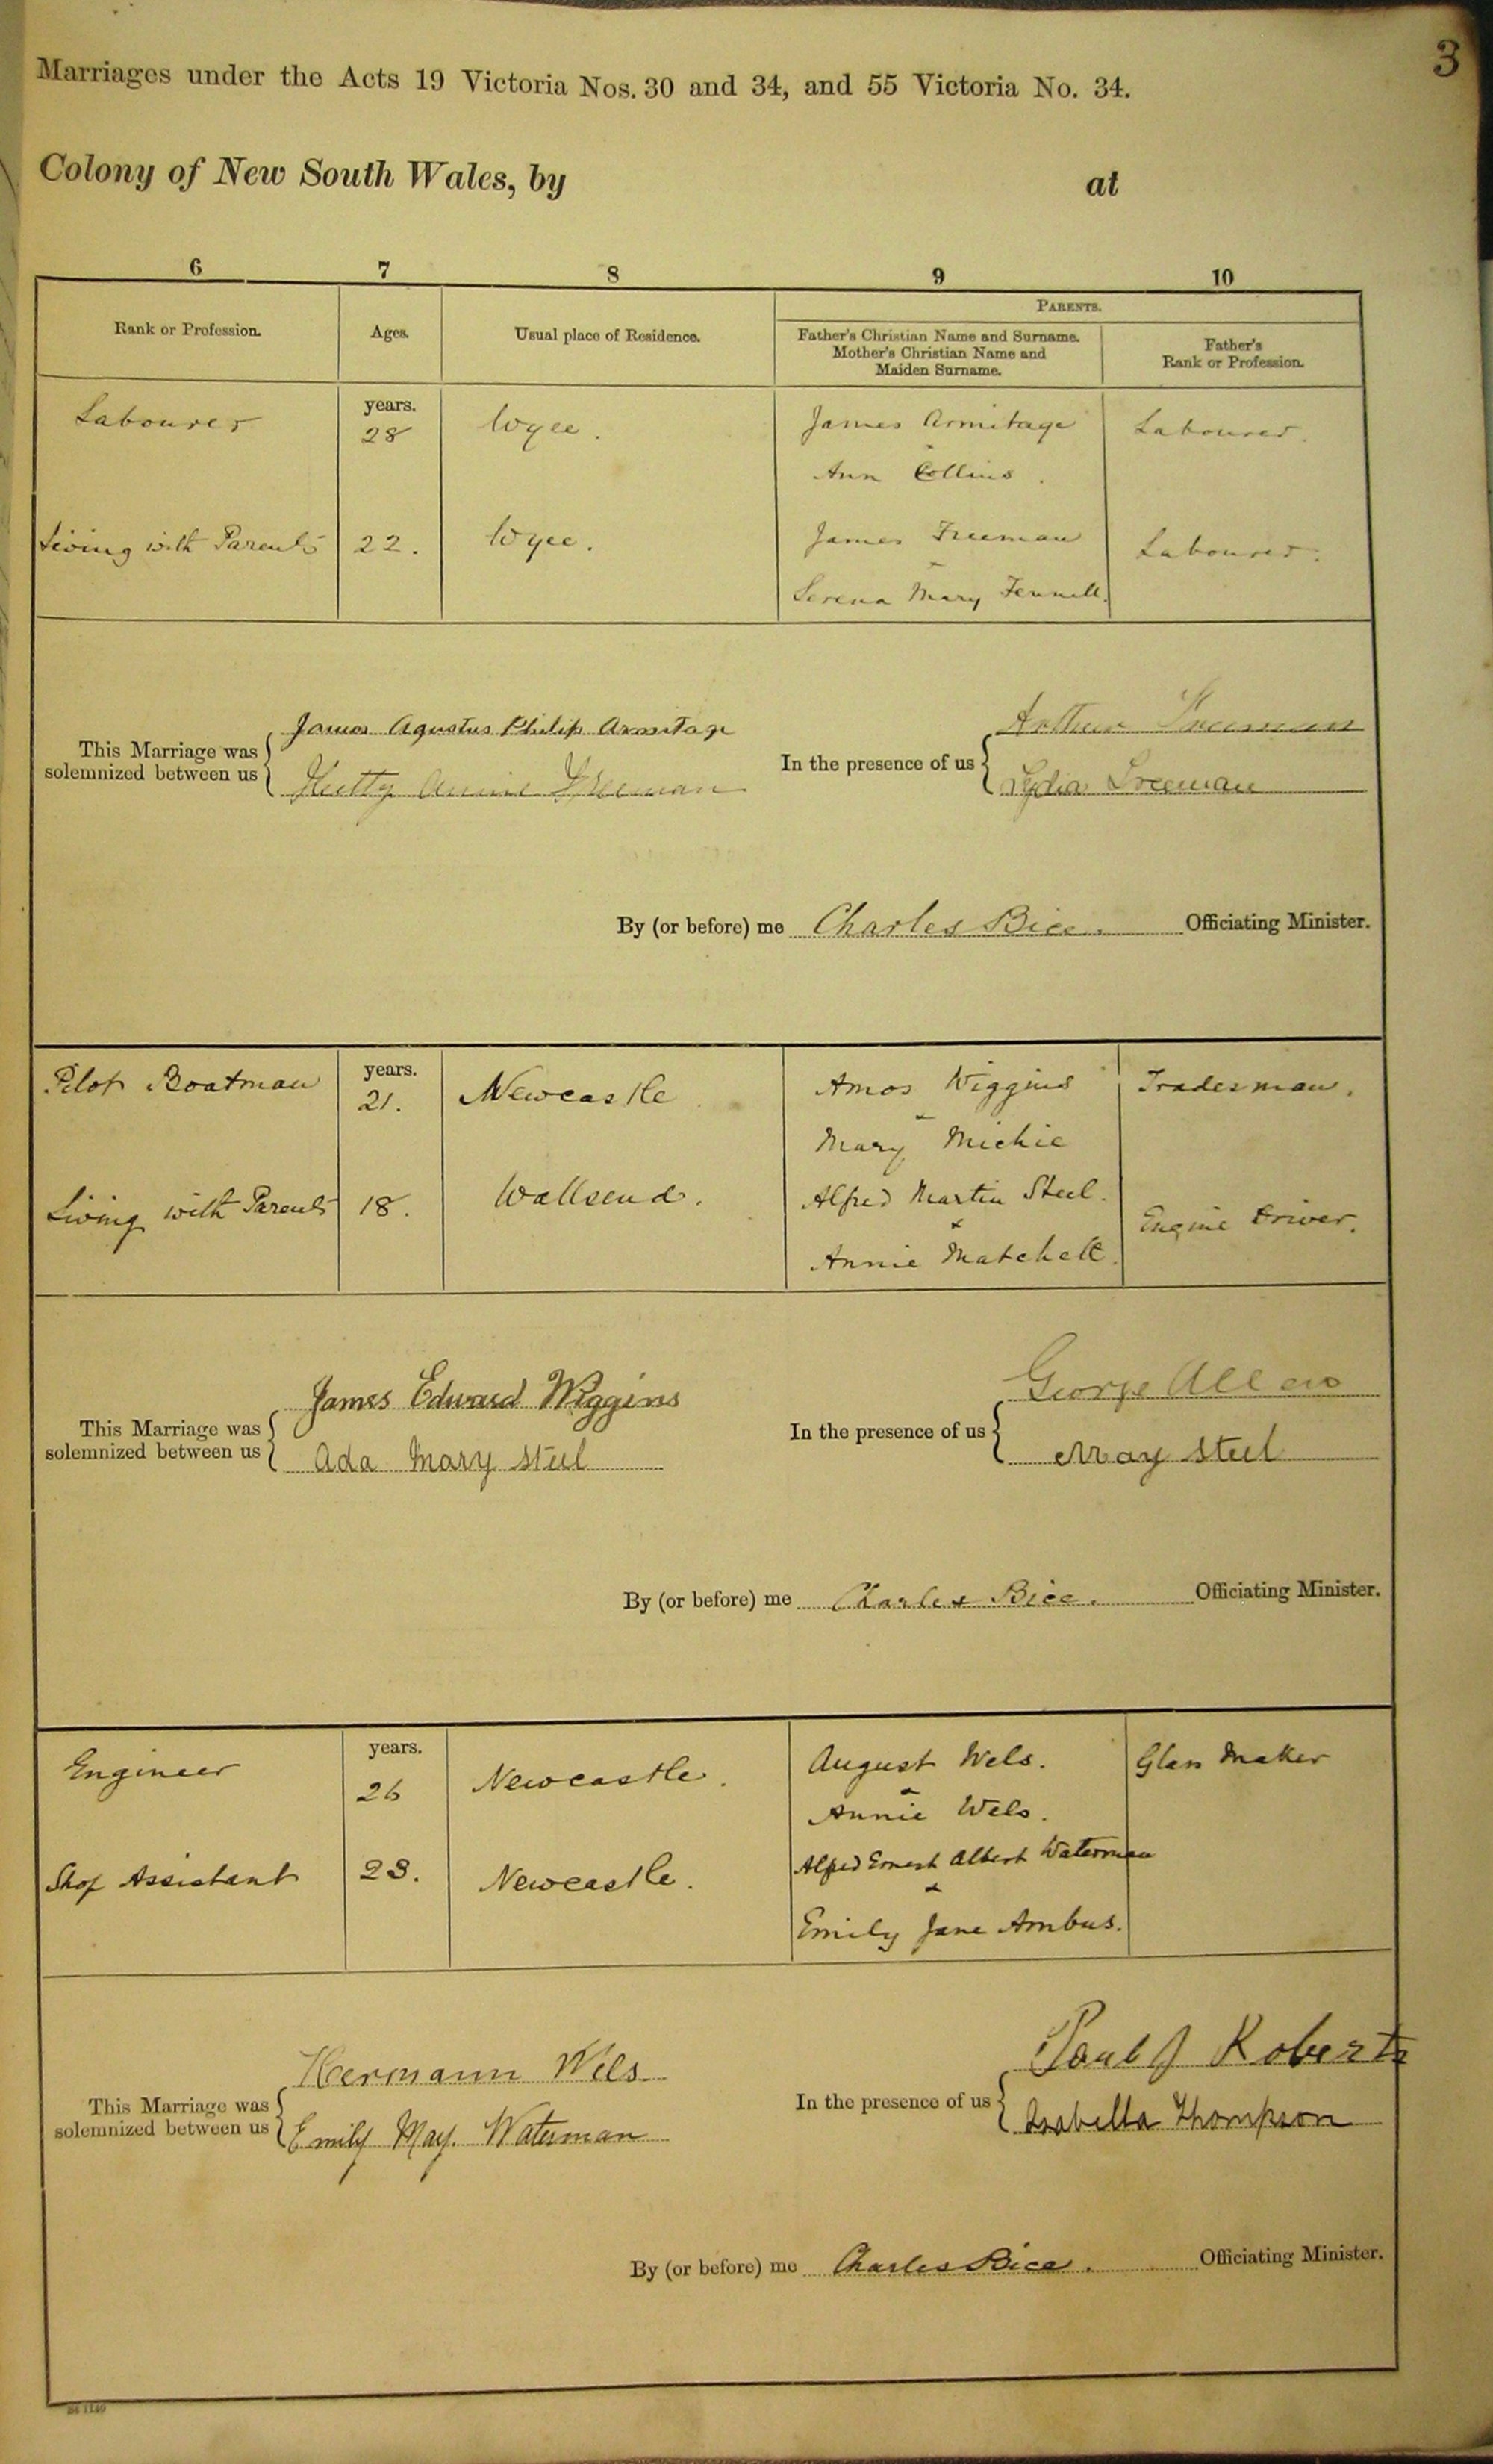 3
Marriages under the Acts 19 Victoria Nos. 30 and 34, and 55 Victoria No. 34.
Colony of New South Wales, by at
6 7 8 9 10
PARENTS.
Rank or Profession. Ages. Usual place of Residence. Father's Christian Name and Surname. Father's
Mother's Christian Name and Rank or Profession.
Maiden Surname.
years.
Labourer 28 Wyee. James Armitage Labourer.
Ann Collins.
Living with Parents 22. Wyee. James Freeman Labourer.
Serena Mary Fennell.
This Marriage was solemnized between us
James Agustus Philip Armitage
Annie Freeman
In the presence of us
Arthur Freeman
Lydia Freeman
By (or before) me Charles Bice. Officiating Minister.
years.
Pilot Boatman 21. Newcastle Amos Wiggins Tradesman.
Mary Michie
Living with Parents 18. Wallsend. Alfred Martin Steel. Engine Driver.
&
Annie Matchett.
This Marriage was solemnized between us
James Edward Wiggins
Ada Mary Steel
In the presence of us
George Allen
May Steel
By (or before) me Charles Bice. Officiating Minister.
years.
Engineer 26 Newcastle. August Wels. Glass Maker
&
Annie Wels.
Shop Assistant 23. Newcastle. Alfred Ernest Albert Waterman
&
Emily Jane Ambus.
This Marriage was solemnized between us
Hermann Wels
Emily May. Waterman
In the presence of us
Paul J Roberts
Isabella Thompson
By (or before) me Charles Bice. Officiating Minister.